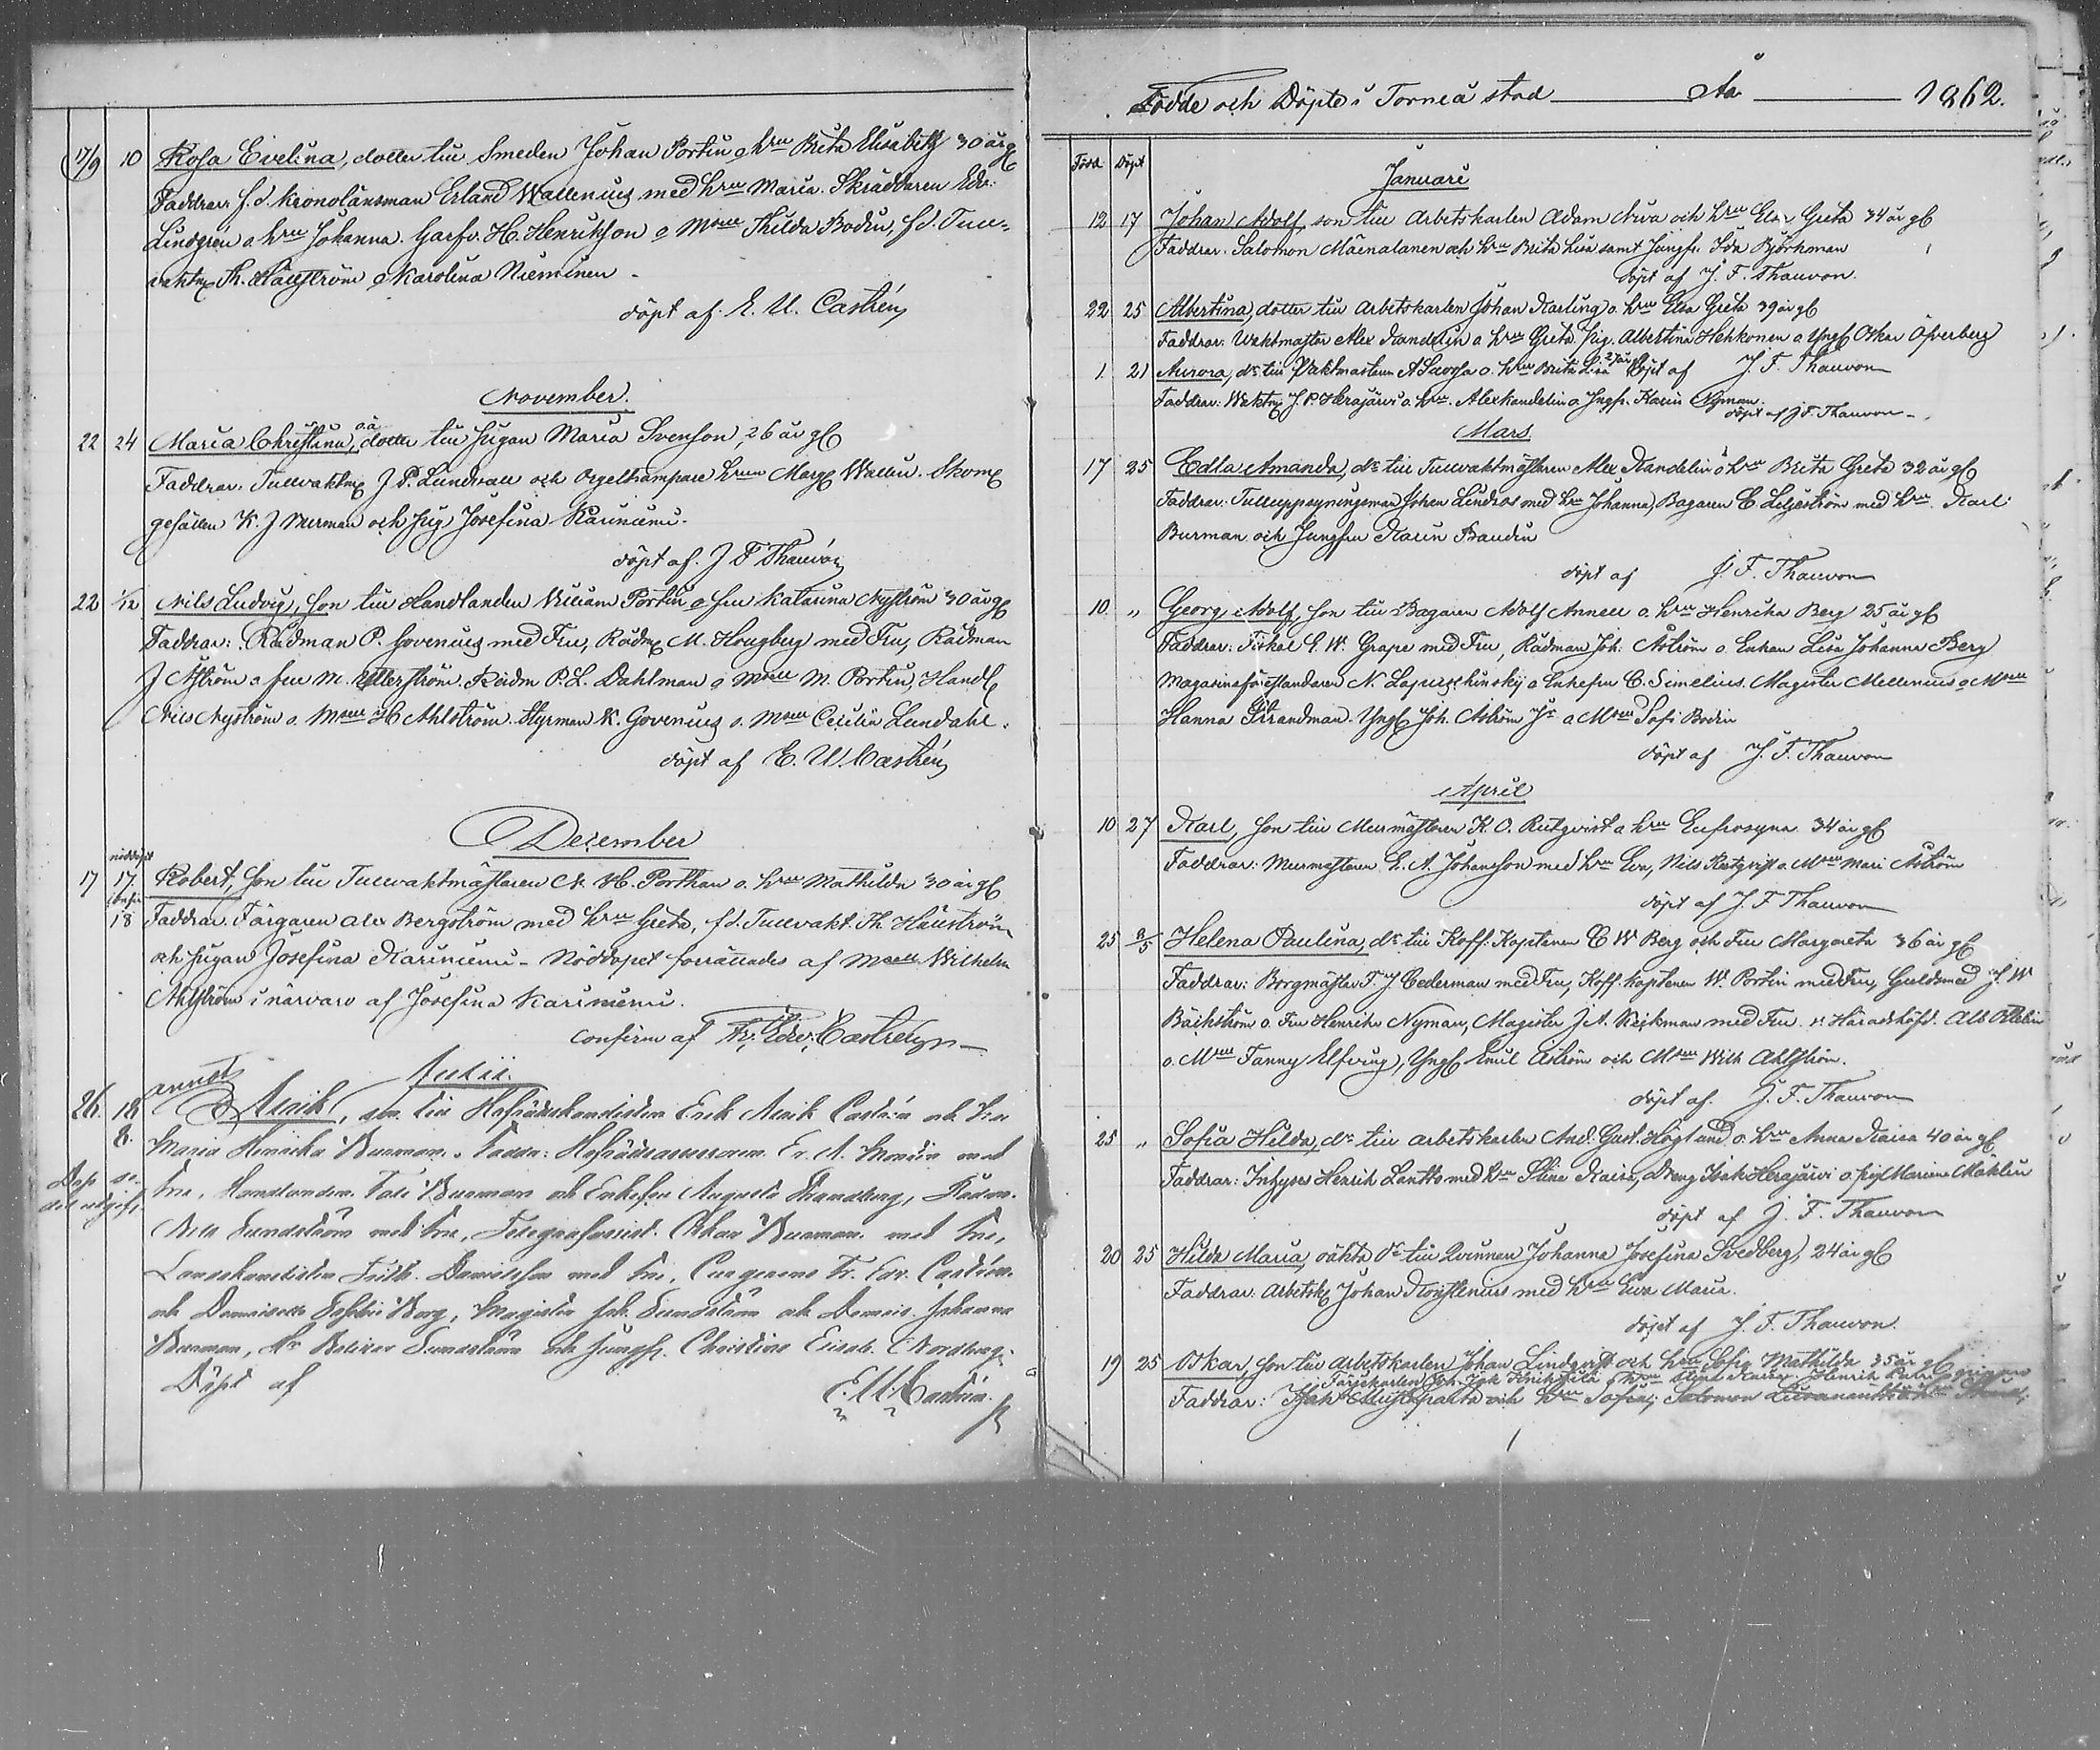 17/9 10 Rosa Evelina, dotter till Smeden Johan Portin o hru Brita Elisabeth 30 år gl
Faddrar f.d. Kronolänsman Erland Wallenius med hru Maria. Skräddaren Edv:
Lindgrén o hru Johanna. Garfv. H. Henrikson o Msell Thilda Bodin, f.d. Tull-
vaktm Th. Hällström o Karolina Nieminen -
döpt af E. U. Castrén
November.
22 24 Maria Christina, oä dotter till Pigan Maria Svenson, 26 år gl
Faddrar. Tullvaktm J. P. Lundvall och Orgeltrampare hrun Marg Wallin. Skom
gesällen K. J Nerman och Pig Josefina Kariniemi.
döpt af. J F Thauvón
22 1/12 Nils Ludvig, son till Handlanden William Portin o fru Katarina Nyström 30 år gl
Faddrar: Rådman P. Govenius med Fru, Rådm M. Hougberg med Fru, Rådman
J Åström o fru M. Rådm P. L. Dahlman o Msell M. Portin, Handl
Nils Nyström o. Msell H Ahlström. Styrman K. Govenius o. Msell Cecilia Lundahl.
döpt af E. U. Castrén
December
nöddöpt
17 17. Robert, son till Tullvaktmästaren N. H. Porthan o. hru Mathilda 30 år gl
18 Faddrar. Färgaren Alex Bergström med hru Greta, f.d. Tullvakt. Th. Hällström
och Pigan Josefina Kariniemi - Nöddopet förrättades af Msell Wilhelm
Ahlström i närvaro af Josefina Kariniemi.
confirm af Fr. Edv. Castrén
Julii.
26. 18 Alarik, son till Hofrådskanslisten Erik Alarik Castrén och fru
8. Maria Henrika Burman. Faddr: Hofrättsassessoren Er. A. med
fru, Handlanden Burman och Enkefru Augusta Strandberg, Rådm.
Sundström med fru, Telegrafassist. Oskar Burman med fru,
Danielsson med fru, Fr. Edv. Castrén
och Borg, Magister Joh. Sundström och Johanna
Burman, Sundström och Jungfr. Christina Elisab. Nordberg.
Döpt af E. U. Castrén.
Födde och Döpte i Torneå stad År 1862.
Född Döpt
Januari
12 17 Johan Adolf, son till Arbetskarlen Adam Niva och hru Elsa Greta 34 år gl
Faddrar. Salomon Mäenalanen och hru Brita Lisa samt Jungfr. Ida Björkman
döpt af J. F. Thauvon.
22 25 Albertina, dotter till Arbetskarlen Johan Karling o. hru Elsa Greta 39 år gl
Faddrar. Waktmäster Alex Kandelin o hru Greta. Pig. Albertina Hehkonen o Yngl Oskar Öfverberg
1. 21 Aurora, dr till Waktmästaren A o. hru Brita Lisa 27 år döpt af J. F. Thauvon
Faddrar. Waktm J. P. Herajärvi o. hru. Alex Kandelin o Jngfr. Karin Nyman.
döpt af J F. Thauvon -
Mars
17 25 Edla Amanda, dr till Tullvaktmästaren Alex Kandelin o hru Brita Greta 32 år gl
Faddrar. Tulluppsyningsman Johan Lindroos med hru Johanna, Bagaren C. Liljeström med hru. Karl
Burman och Jungfru Karin
döpt af J. F. Thauvon
10. „ Georg Adolf, son till Bagaren Adolf Annell o. hru Henrika Berg 25 år gl
Faddrar: Fiskal E. W. Grape med Fru, Rådman Joh. Åström o. Enkan Lisa Johanna Berg
Magasinsföreståndaren N. Lapuschinskij o Enkefru C. Simelius. Magister Mellenius o Msell
Hanna Strandman. Yngl Joh. Åström Jr o Msell Sofi Bodin
döpt af J. F. Thauvon
April
10 27 Karl, son till Murmästaren K. O. Rutqvist o hru Eufrosyna. 34 år gl
Faddrar: Murmästaren E. A. Johanson med hru Eva, Nils Rutqvist o. Msell Mari Åström
döpt af J. F Thauvon
25 3/5 Helena Paulina, dr till Koff. Kaptenen C W Berg och Fru Margareta 36 år gl
Faddrar: Borgmästar F. J Cederman med Fru, Koff. Kaptenen W. Portin med Fru, Guldsmed J. W
Bäckström o. Fru Henrika Nyman, Magister J A. Heikman med Fru. v. Häradshöfd. Alb
o. Msell Fanny Elfving, Yngl Emil Åström och Msell Wilh Ahlström.
döpt af. J. F. Thauvon
25 „ Sofia Hilda, dr till Arbetskarlen And. Gust. Höglund o. hru Anna Kaisa 40 år gl
Faddrar: Inhyses Henrik Lantto med hru Stina Kaisa, Dreng Isak Herajärvi o. Pig Mariana Mäklin
döpt af J. F. Thauvon
20 25 Hilda Maria, oäkta dr till Qvinnan Johanna Josefina Svedberg, 24 år gl
Faddrar. Arbetsk Johan med hru Eva Maria.
döpt af J. F. Thauvon.
19 25 Oskar, son till Arbetskarlen Johan Lindqvist och hru Sofia Mathilda 35 år gl
Faddrar: Isak och hru Sofia; Salomon